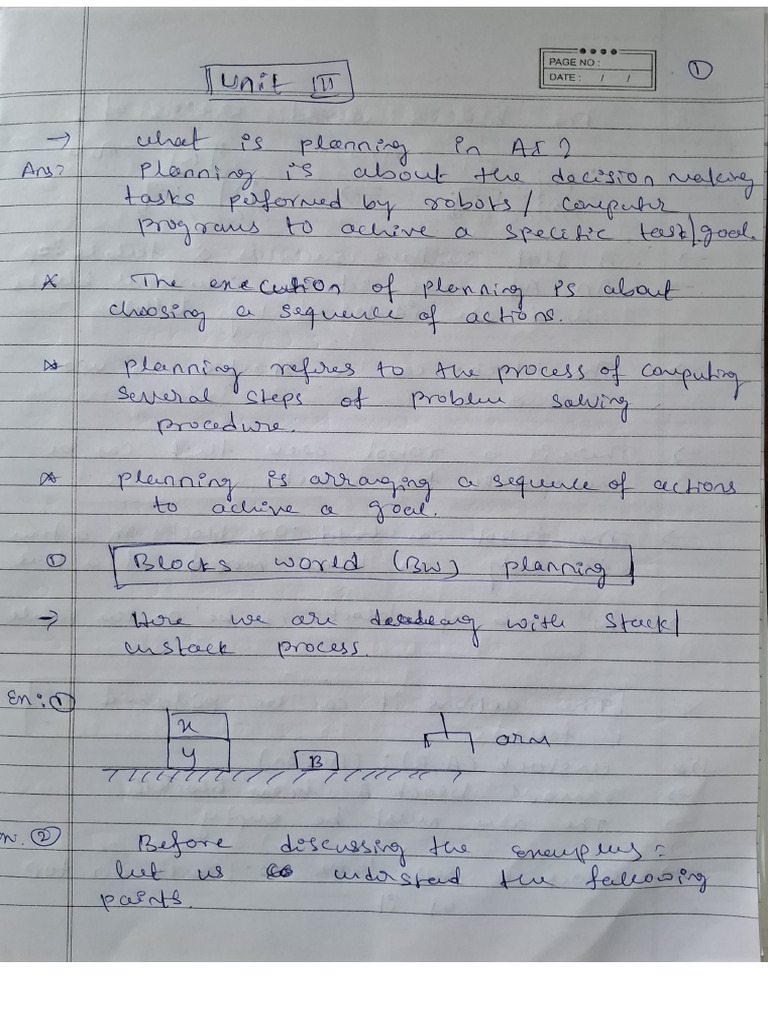 PAGE NO :
DATE : / /
1
Unit III
→ what is planning in AI?
Ans: Planning is about the decision making
tasks performed by robots / computer
programs to achive a specific task/goal.
The execution of planning is about
choosing a sequence of actions.
planning refires to the process of computing
several steps of problem solving
procedure.
planning is arranging a sequence of actions
to achive a goal.
① Blocks world (BW) planning
→ Here we are with stack/
unstack process.
En: ①
x
y
B
arm
② Before discussing the examples:
let us understead the following
points.